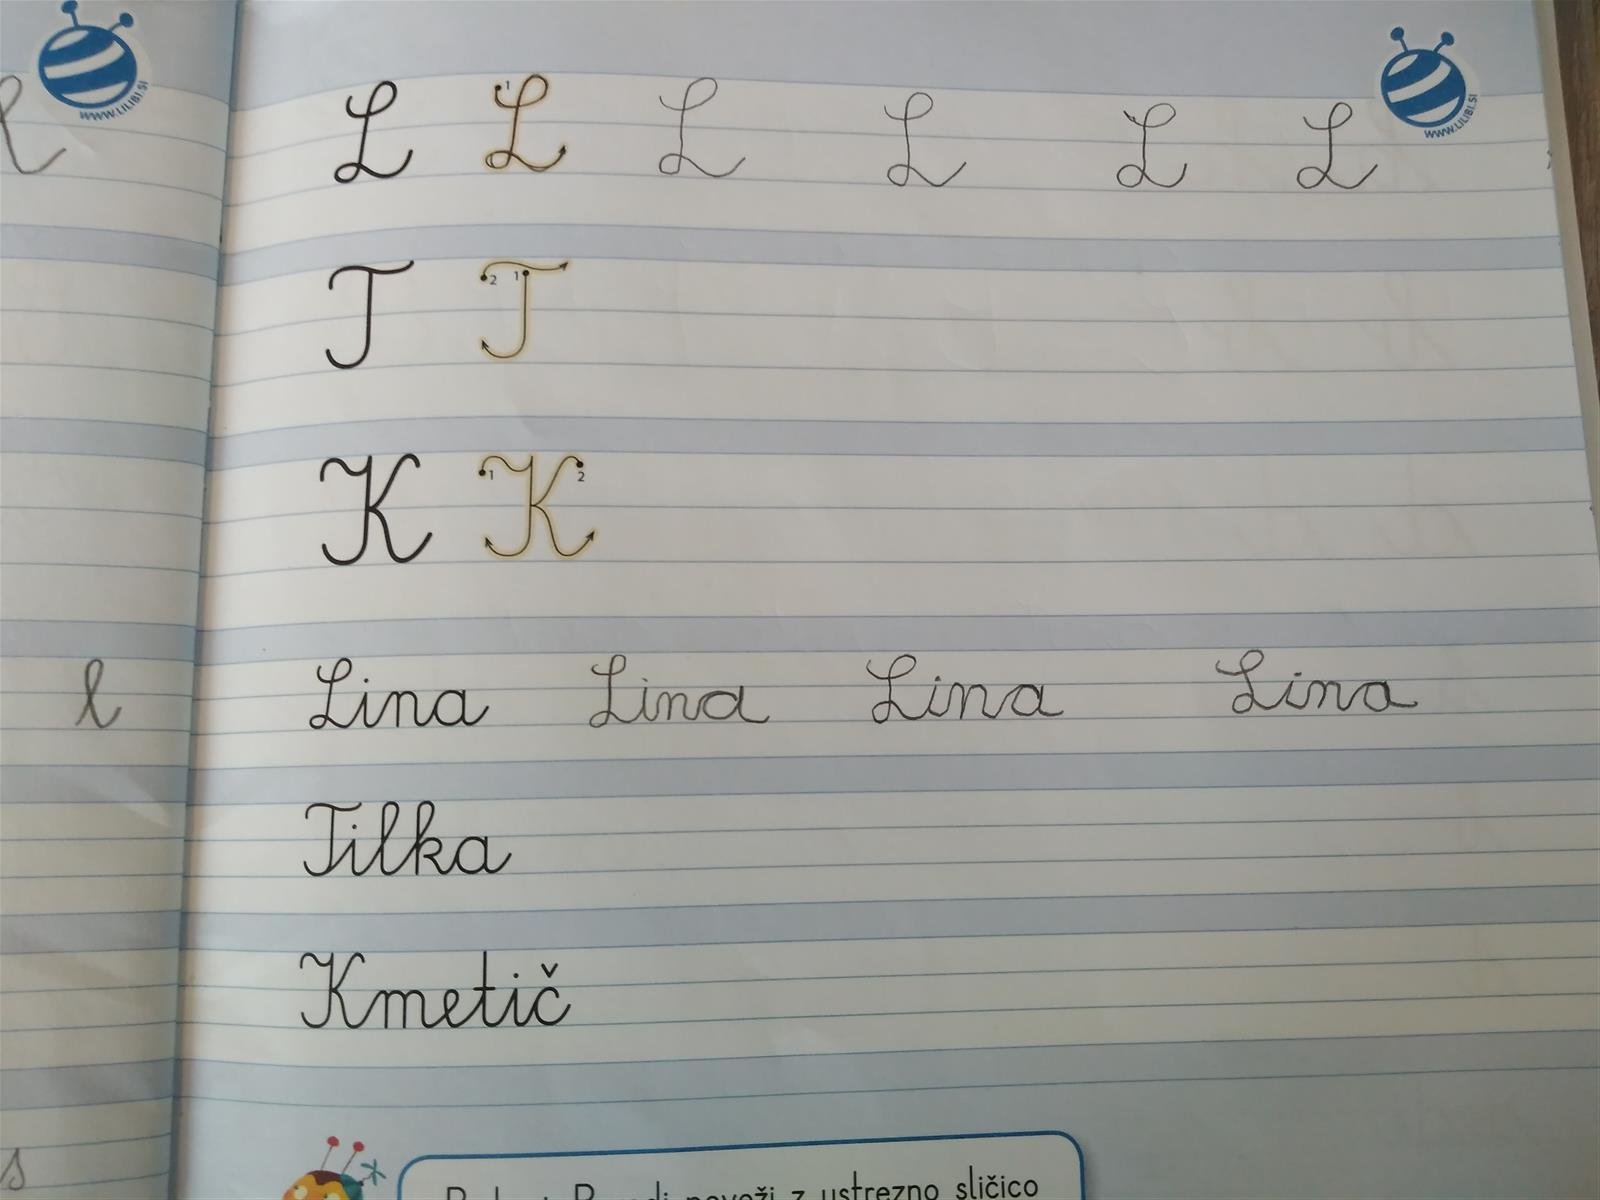 WWW.LILIBI.SI
WWW.LILIBI.SI
l
L L L L L L
T T
K K
l
Lina Lina Lina Lina
Tilka
Kmetič
s
povezi z ustrezno sličico